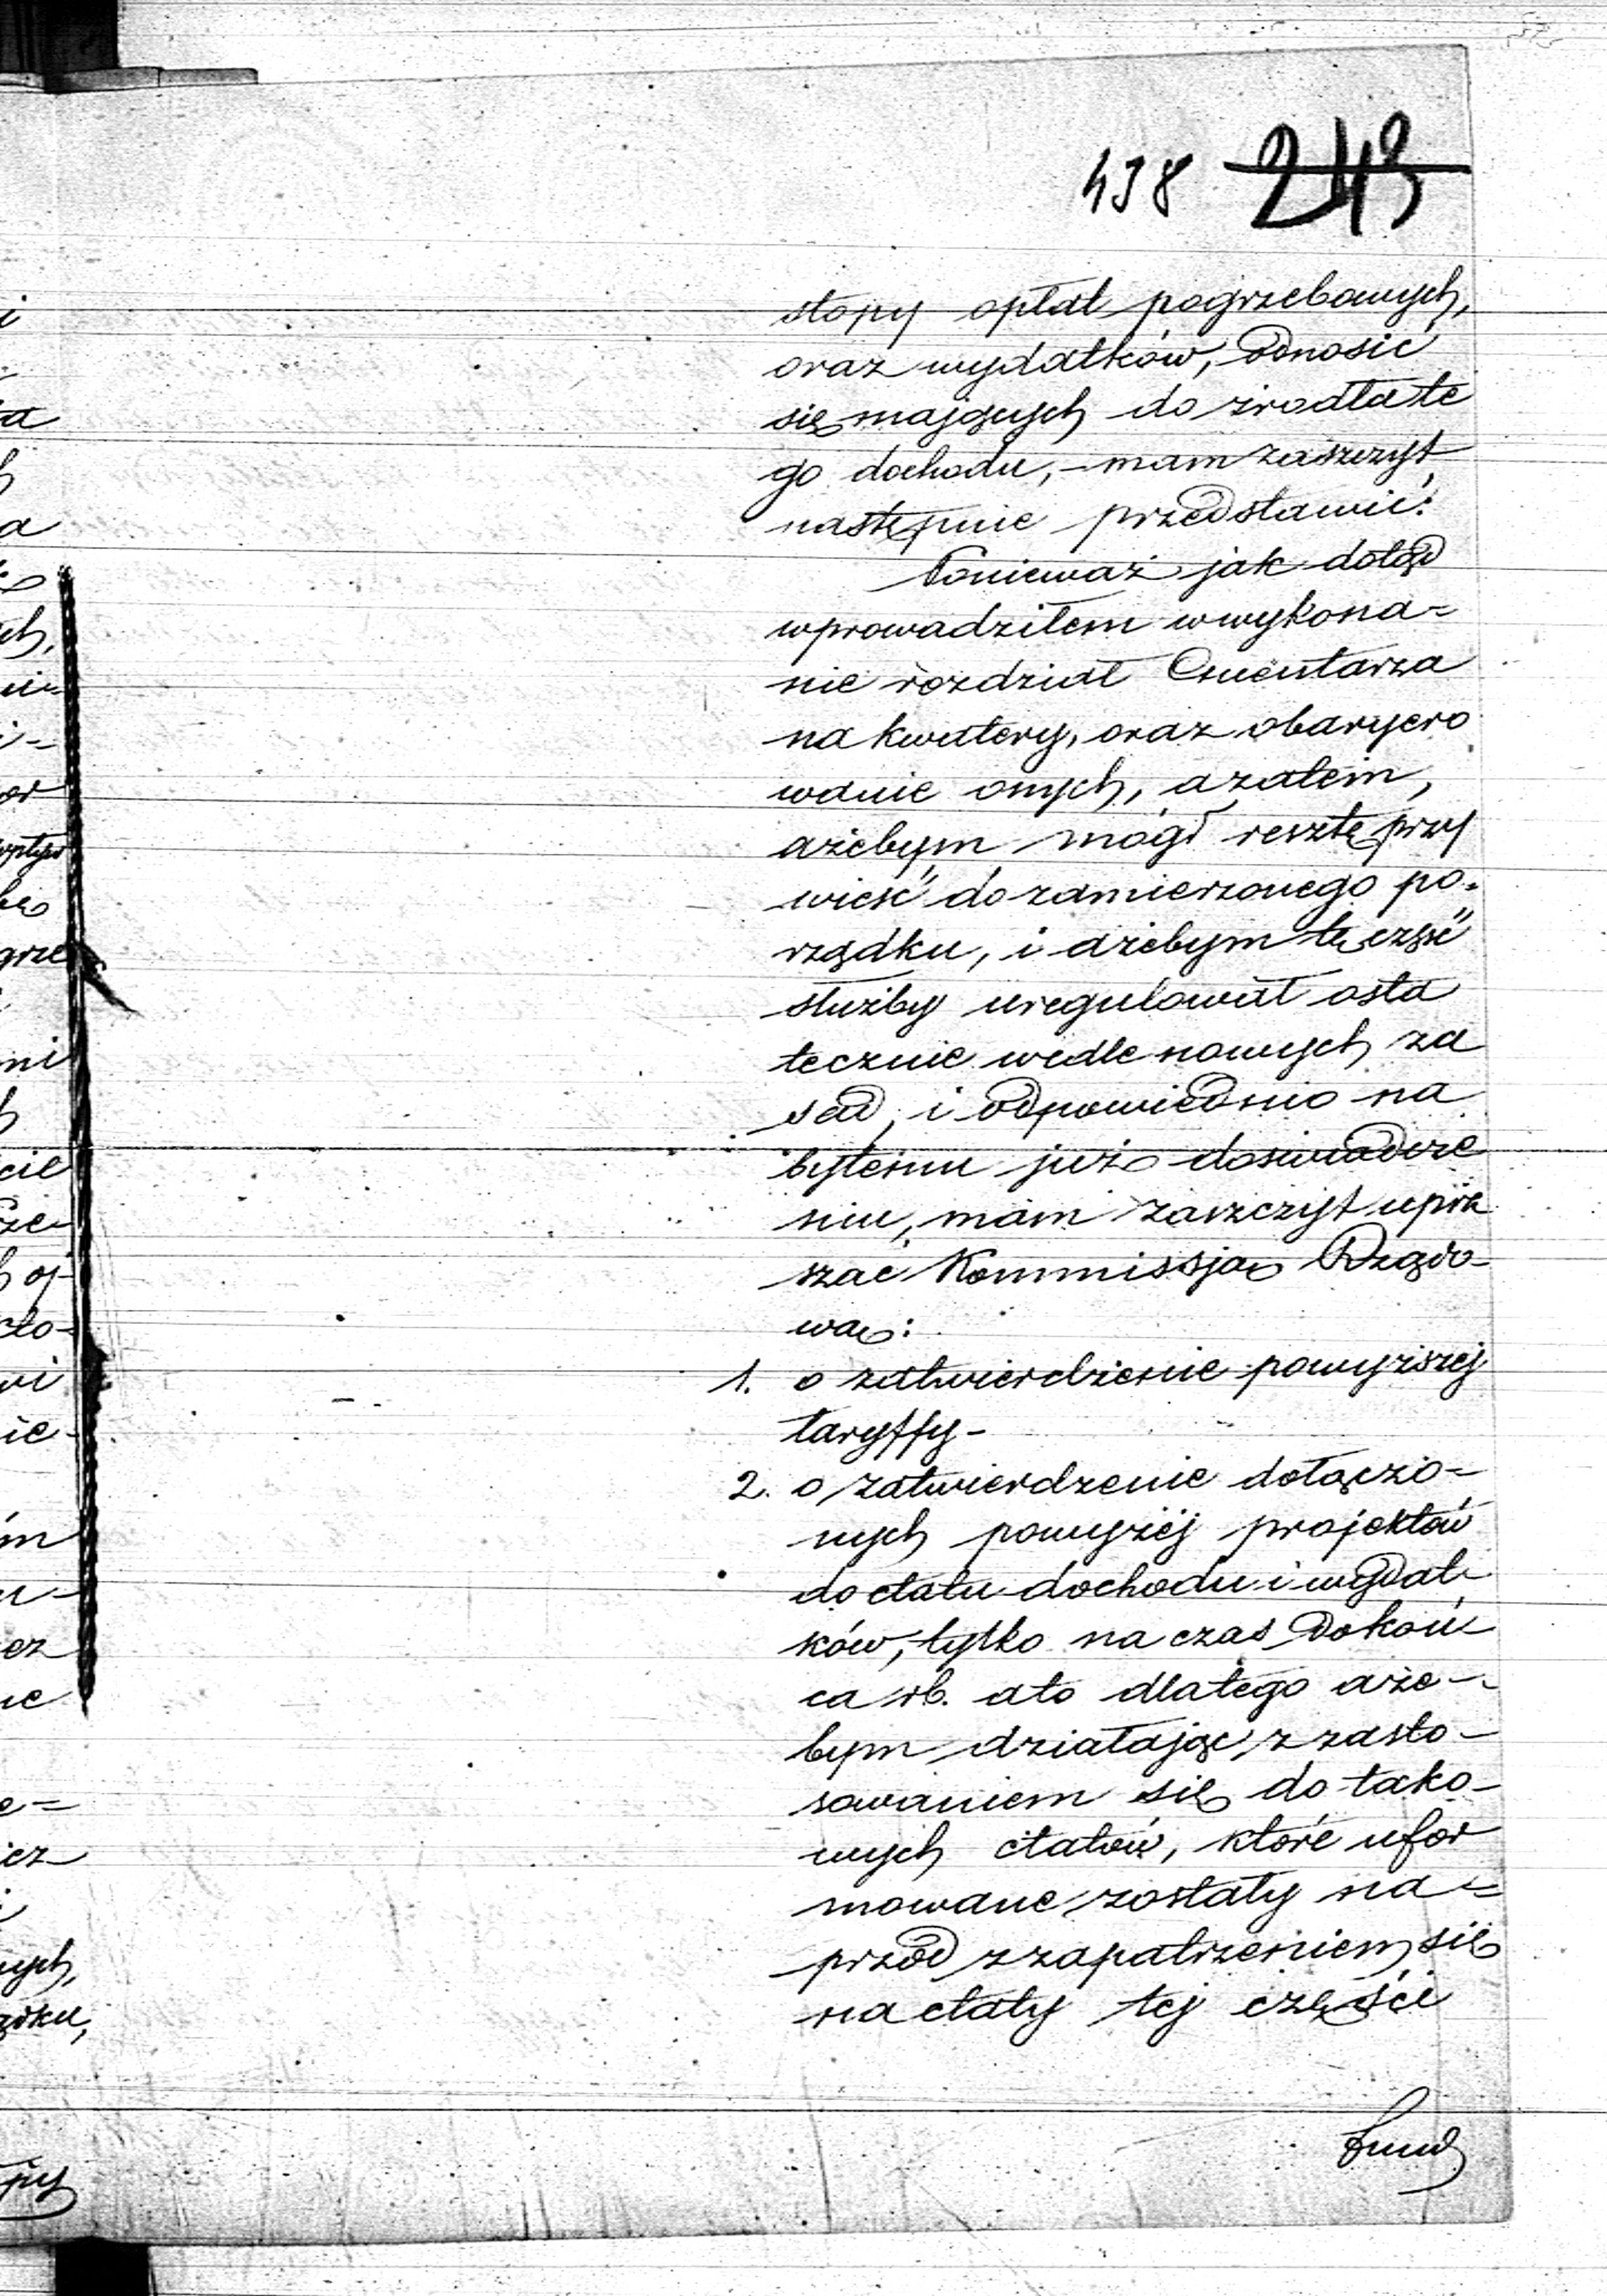 438 243
stopy opłat pogrzebowych,
oraz wydatków, odnosić
się mających do źrodła te
go dochodu, – mam zaszczyt
następnie przedstawić:
Ponieważ jak dotąd
wprowadziłem w wykona=
nie rozdział Cmentarza
na kwatery, oraz obaryero
wanie onych, a zatem,
ażebym mógł resztę przy
wieść do zamierzonego po=
rządku, i ażebym tę część
służby uregulował osta
tecznie wedle nowych za
sad, i odpowiednio na
bytemu już doświadcze
niu, mam zaszczyt upra
szać Kommissją Rządo-
wą:
1. o zatwierdzenie powyższej
taryffy -
2. o zatwierdzenie dołączo-
nych powyżéj projektów
do etatu dochodu i wydat-
ków, tylko na czas do koń-
ca rb. a to dlatego aże-
bym działając z zasto-
sowaniem się do tako-
wych etatów, które ufor
mowane zostały na=
przód z zapatrzeniem się
na etaty tej części